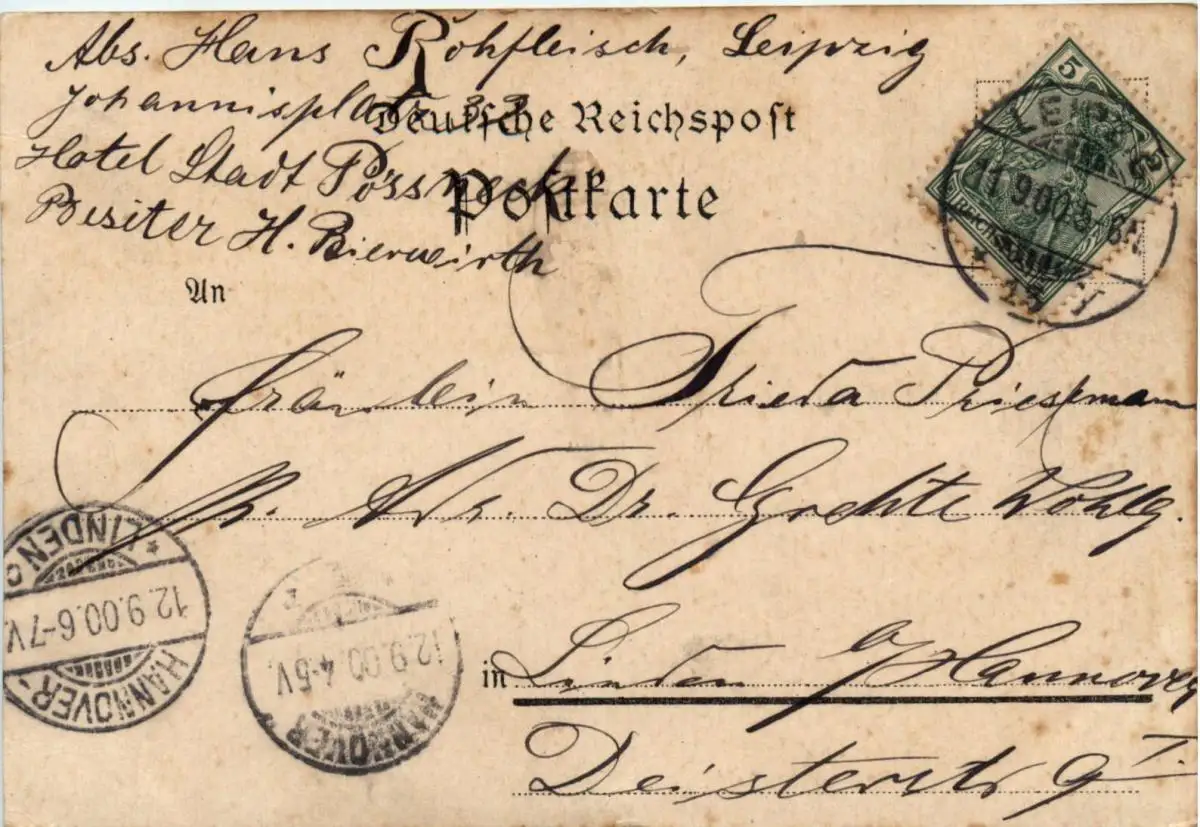 Abs. Hans Rohfleisch, Leipzig
Johannisplatz 33
Hotel Stadt Pössneck
Besiter H. Bierwirth
Deutsche Reichspost
Postkarte
5
5
REICHSPOST
LEIPZIG
11.9.00.
An
Fräulein Frieda Priesemann
p. Adr. Dr. Grehte Wohlg.
in Linden b/Hannover
Deisterstr 9 I.
LINDEN
12.9.00.6-7V.
HANNOVER-
12.9.00.4-5V.
HANNOVER